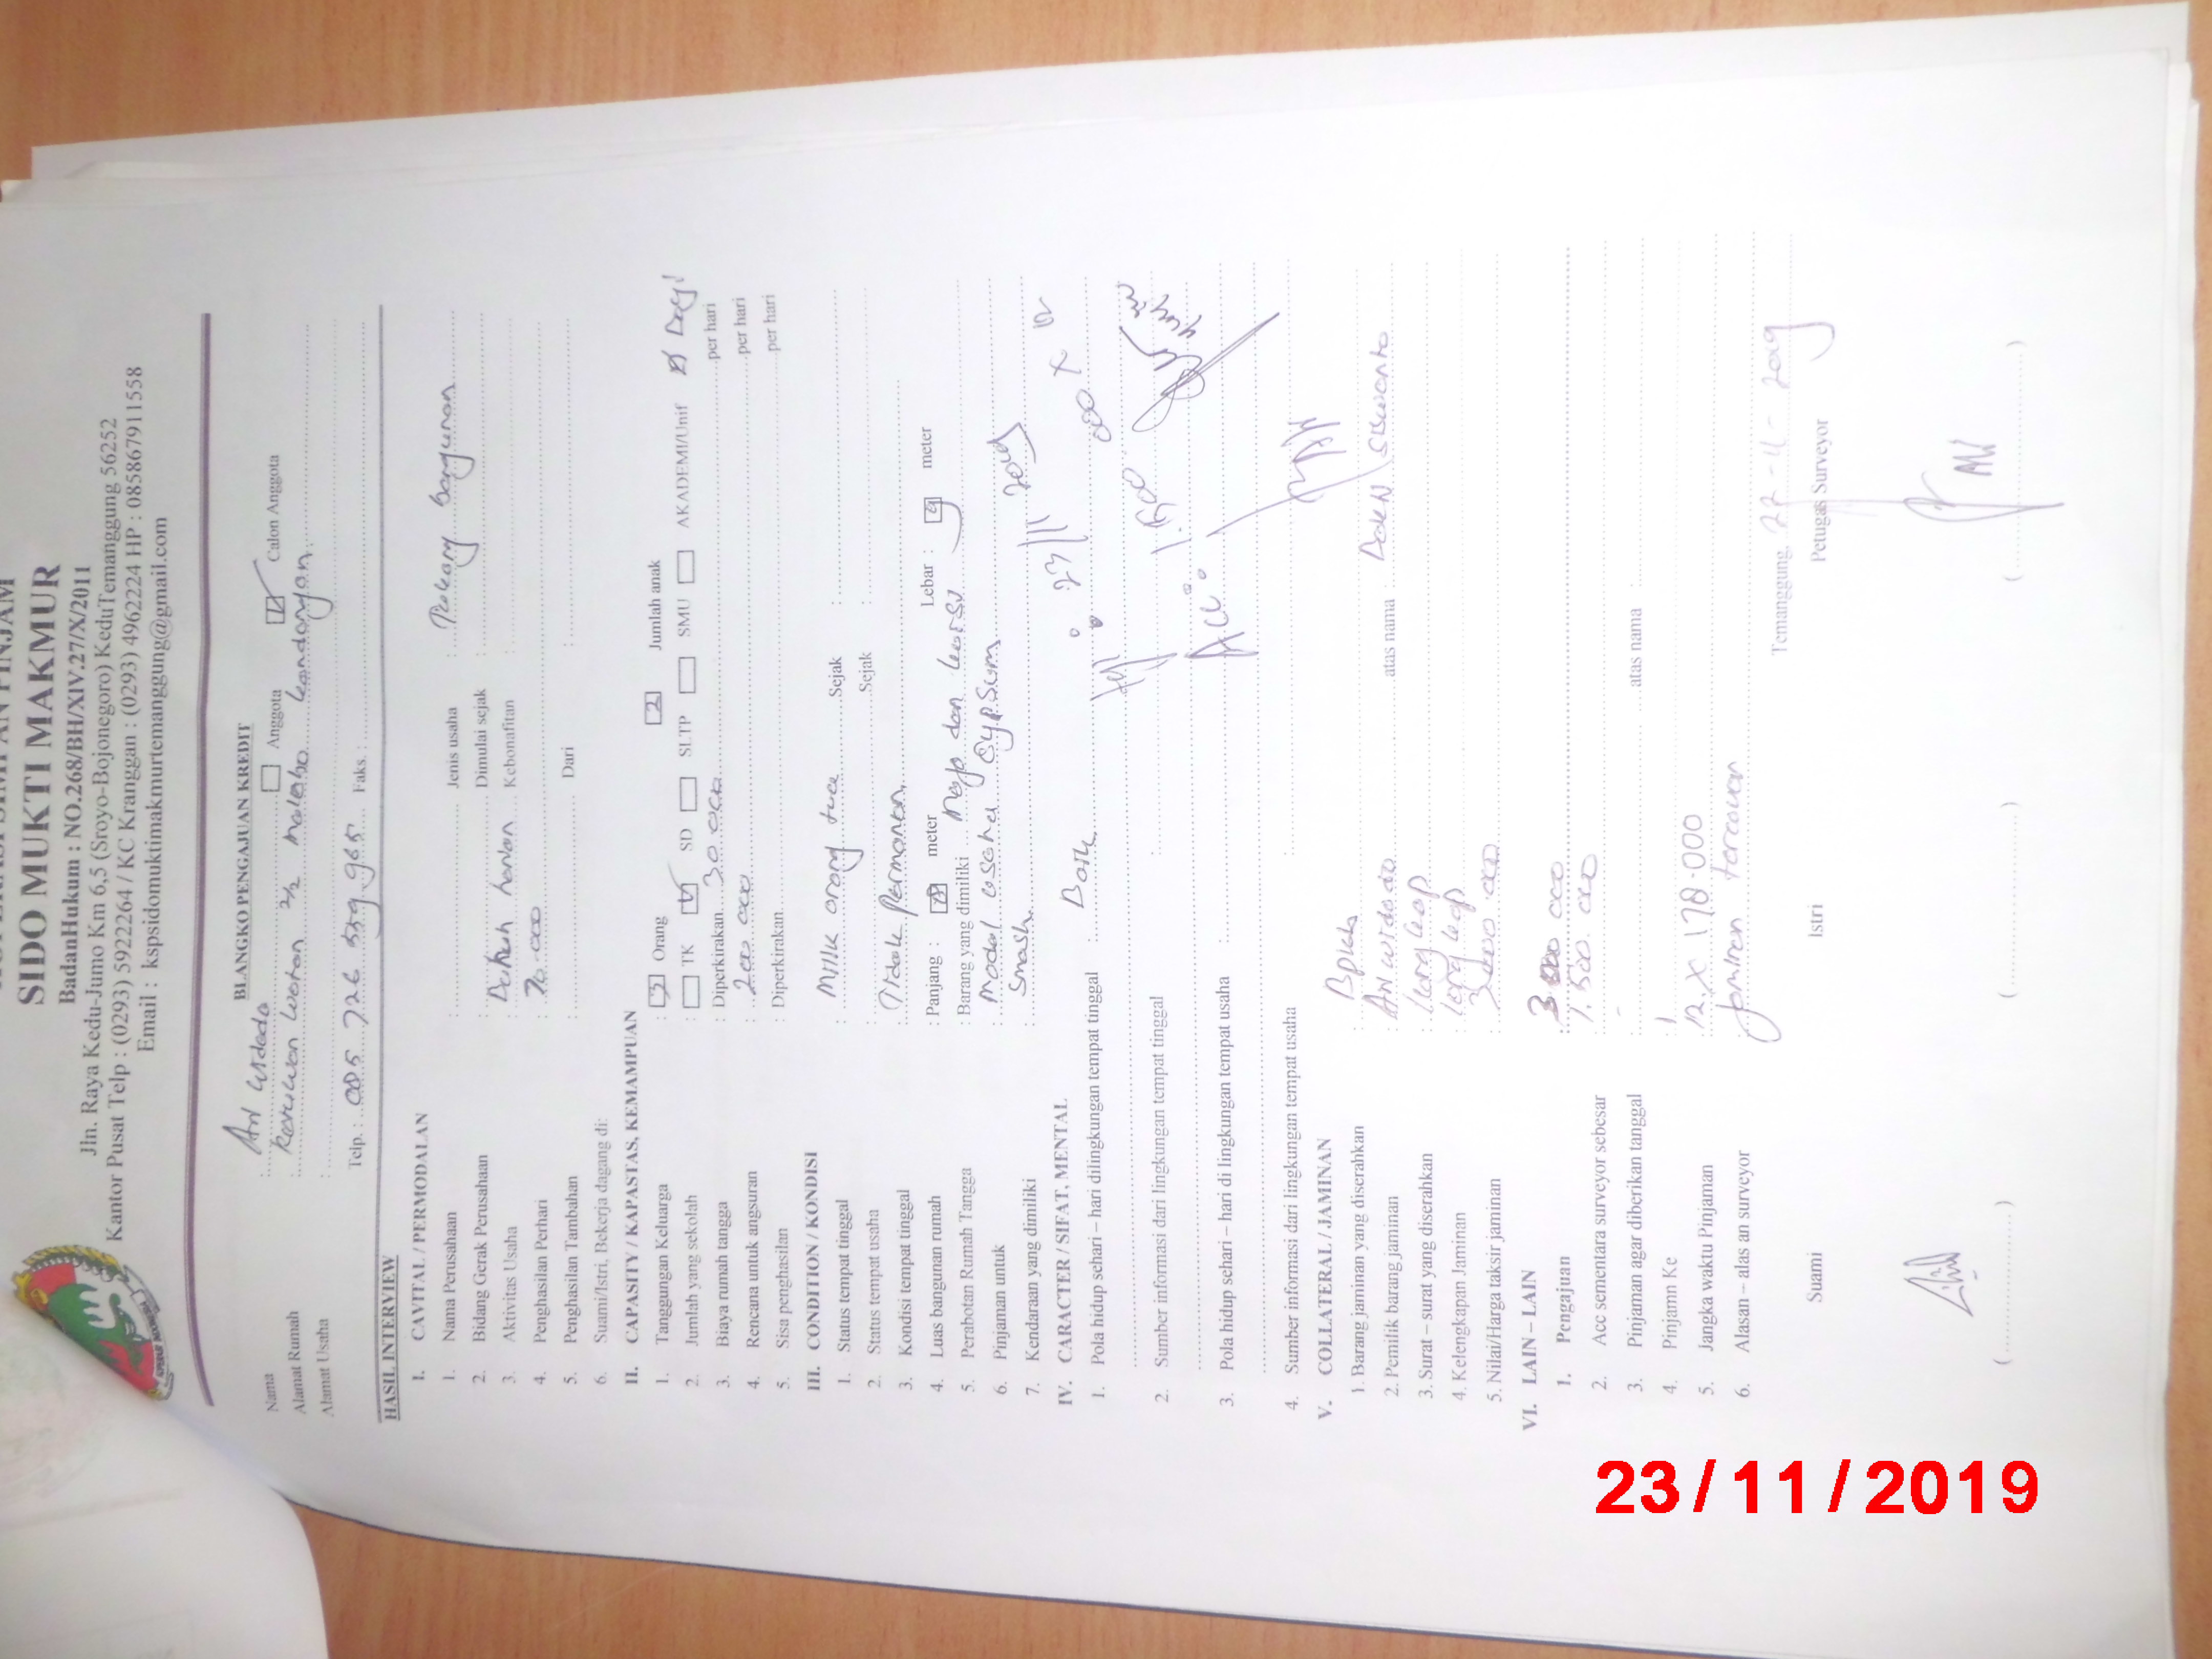 SIDO MUKTI MAKMUR
BadanHukum : NO.268/BH/XIV.27/X/2011
Jln. Raya Kedu-Jumo Km 6,5 (Sroyo-Bojonegoro) KeduTemanggung 56252
Kantor Pusat Telp : (0293) 5922264 / KC Kranggan : (0293) 4962224 HP : 085867911558
Email : kspsidomuktimakmurtemanggung@gmail.com
BLANGKO PENGAJUAN KREDIT
Nama : Ari Widodo Anggota Calon Anggota
Alamat Rumah : wetan 2/2 kandangan
Alamat Usaha :
Telp. : 085 726 559 965 Faks. :
HASIL INTERVIEW
I. CAVITAL / PERMODALAN
1. Nama Perusahaan : Jenis usaha : Tukang bangunan
2. Bidang Gerak Perusahaan : Dimulai sejak :
3. Aktivitas Usaha : harian Kebonafitan
4. Penghasilan Perhari : 70.000
5. Penghasilan Tambahan : Dari :
6. Suami/Istri, Bekerja dagang di:
II. CAPASITY / KAPASTAS, KEMAMPUAN
1. Tanggungan Keluarga : 3 Orang 2 Jumlah anak
2. Jumlah yang sekolah : TK SD SLTP SMU AKADEMI/Unif
3. Biaya rumah tangga : Diperkirakan 30.000 per hari
4. Rencana untuk angsuran : 200 000 per hari
5. Sisa penghasilan : Diperkirakan per hari
III. CONDITION / KONDISI
1. Status tempat tinggal : Milik orang tua Sejak :
2. Status tempat usaha : Sejak :
3. Kondisi tempat tinggal : Tidak Permanen
4. Luas bangunan rumah : Panjang : meter Lebar : 9 meter
5. Perabotan Rumah Tangga : Barang yang dimiliki Meja dan kursi
6. Pinjaman untuk : modal usaha Gypsum
7. Kendaraan yang dimiliki : Smash
IV. CARACTER / SIFAT, MENTAL
1. Pola hidup sehari – hari dilingkungan tempat tinggal : Baik
2. Sumber informasi dari lingkungan tempat tinggal :
3. Pola hidup sehari – hari di lingkungan tempat usaha :
4. Sumber informasi dari lingkungan tempat usaha :
V. COLLATERAL / JAMINAN
1. Barang jaminan yang diserahkan : Bpkb
2. Pemilik barang jaminan : Ari widodo atas nama Siswanto
3. Surat – surat yang diserahkan : lengkap
4. Kelengkapan Jaminan : lengkap
5. Nilai/Harga taksir jaminan : 3000 000
VI. LAIN – LAIN
1. Pengajuan : 3 000 000
2. Acc sementara surveyor sebesar : 1.500.000
3. Pinjaman agar diberikan tanggal : - atas nama
4. Pinjamn Ke : 1
5. Jangka waktu Pinjaman : 12 x 178.000
6. Alasan – alas an surveyor : jaminan tercover
Temanggung, 22 - 11 - 2019
Suami Istri Petugas Surveyor
23/11/2019